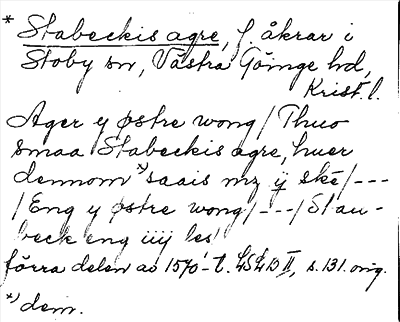 * Stabeckis agre, f. åkrar i
Stoby sn, Västra Göinge hd,
Krist. l.
Ager y østre wong / Thuo
smaa Stabeckis agre, huer
dennom *) saais mz ij skē / ---
/ Eng y østre wong / --- / Stau-
beck eng iiij les
förra delen av 1570-t. LSLD II, s. 131. orig.
*) dem.